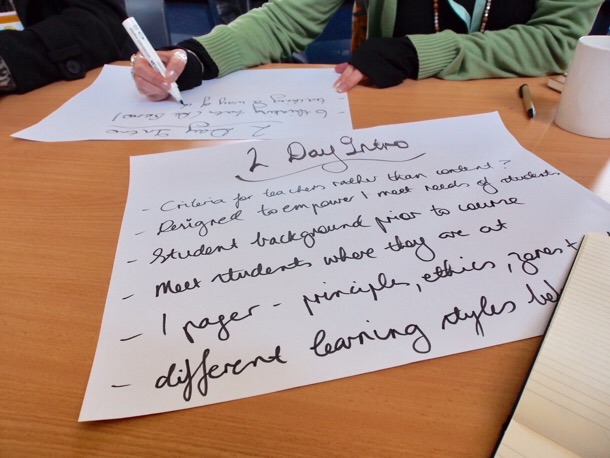 2 Day Intro
- Criteria for teachers rather than content?
- Designed to empower / meet needs of students
- Student background prior to course
- Meet students where they are at
- 1 pager - principles, ethics, zones +
- different learning styles
2 Day Intro
- 6 thinking hats (de Bono)
- teaching